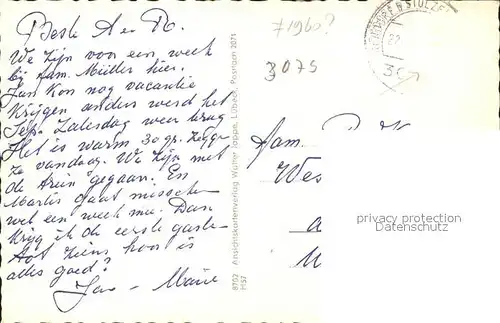 Beste A en R.
We zijn voor een week
bij Fam. Müller hier.
Jan kon nog vacantie
krijgen anders werd het
Sep. Zaterdag weer terug
Het is warm 30 gr. zegge
ze vandaag. We zijn met
de trein gegaan. En
Marlis gaat misschien
wel een week mee. Dan
krijg ik de eerste gaste
tot ziens hoor is
alles goed?
Jan - Marie
71960?
3075
8702 Ansichtskartenverlag Walter Joppe, Lübeck, Postfach 2071
H57
Fam.
Wes
privacy protection
Datenschutz